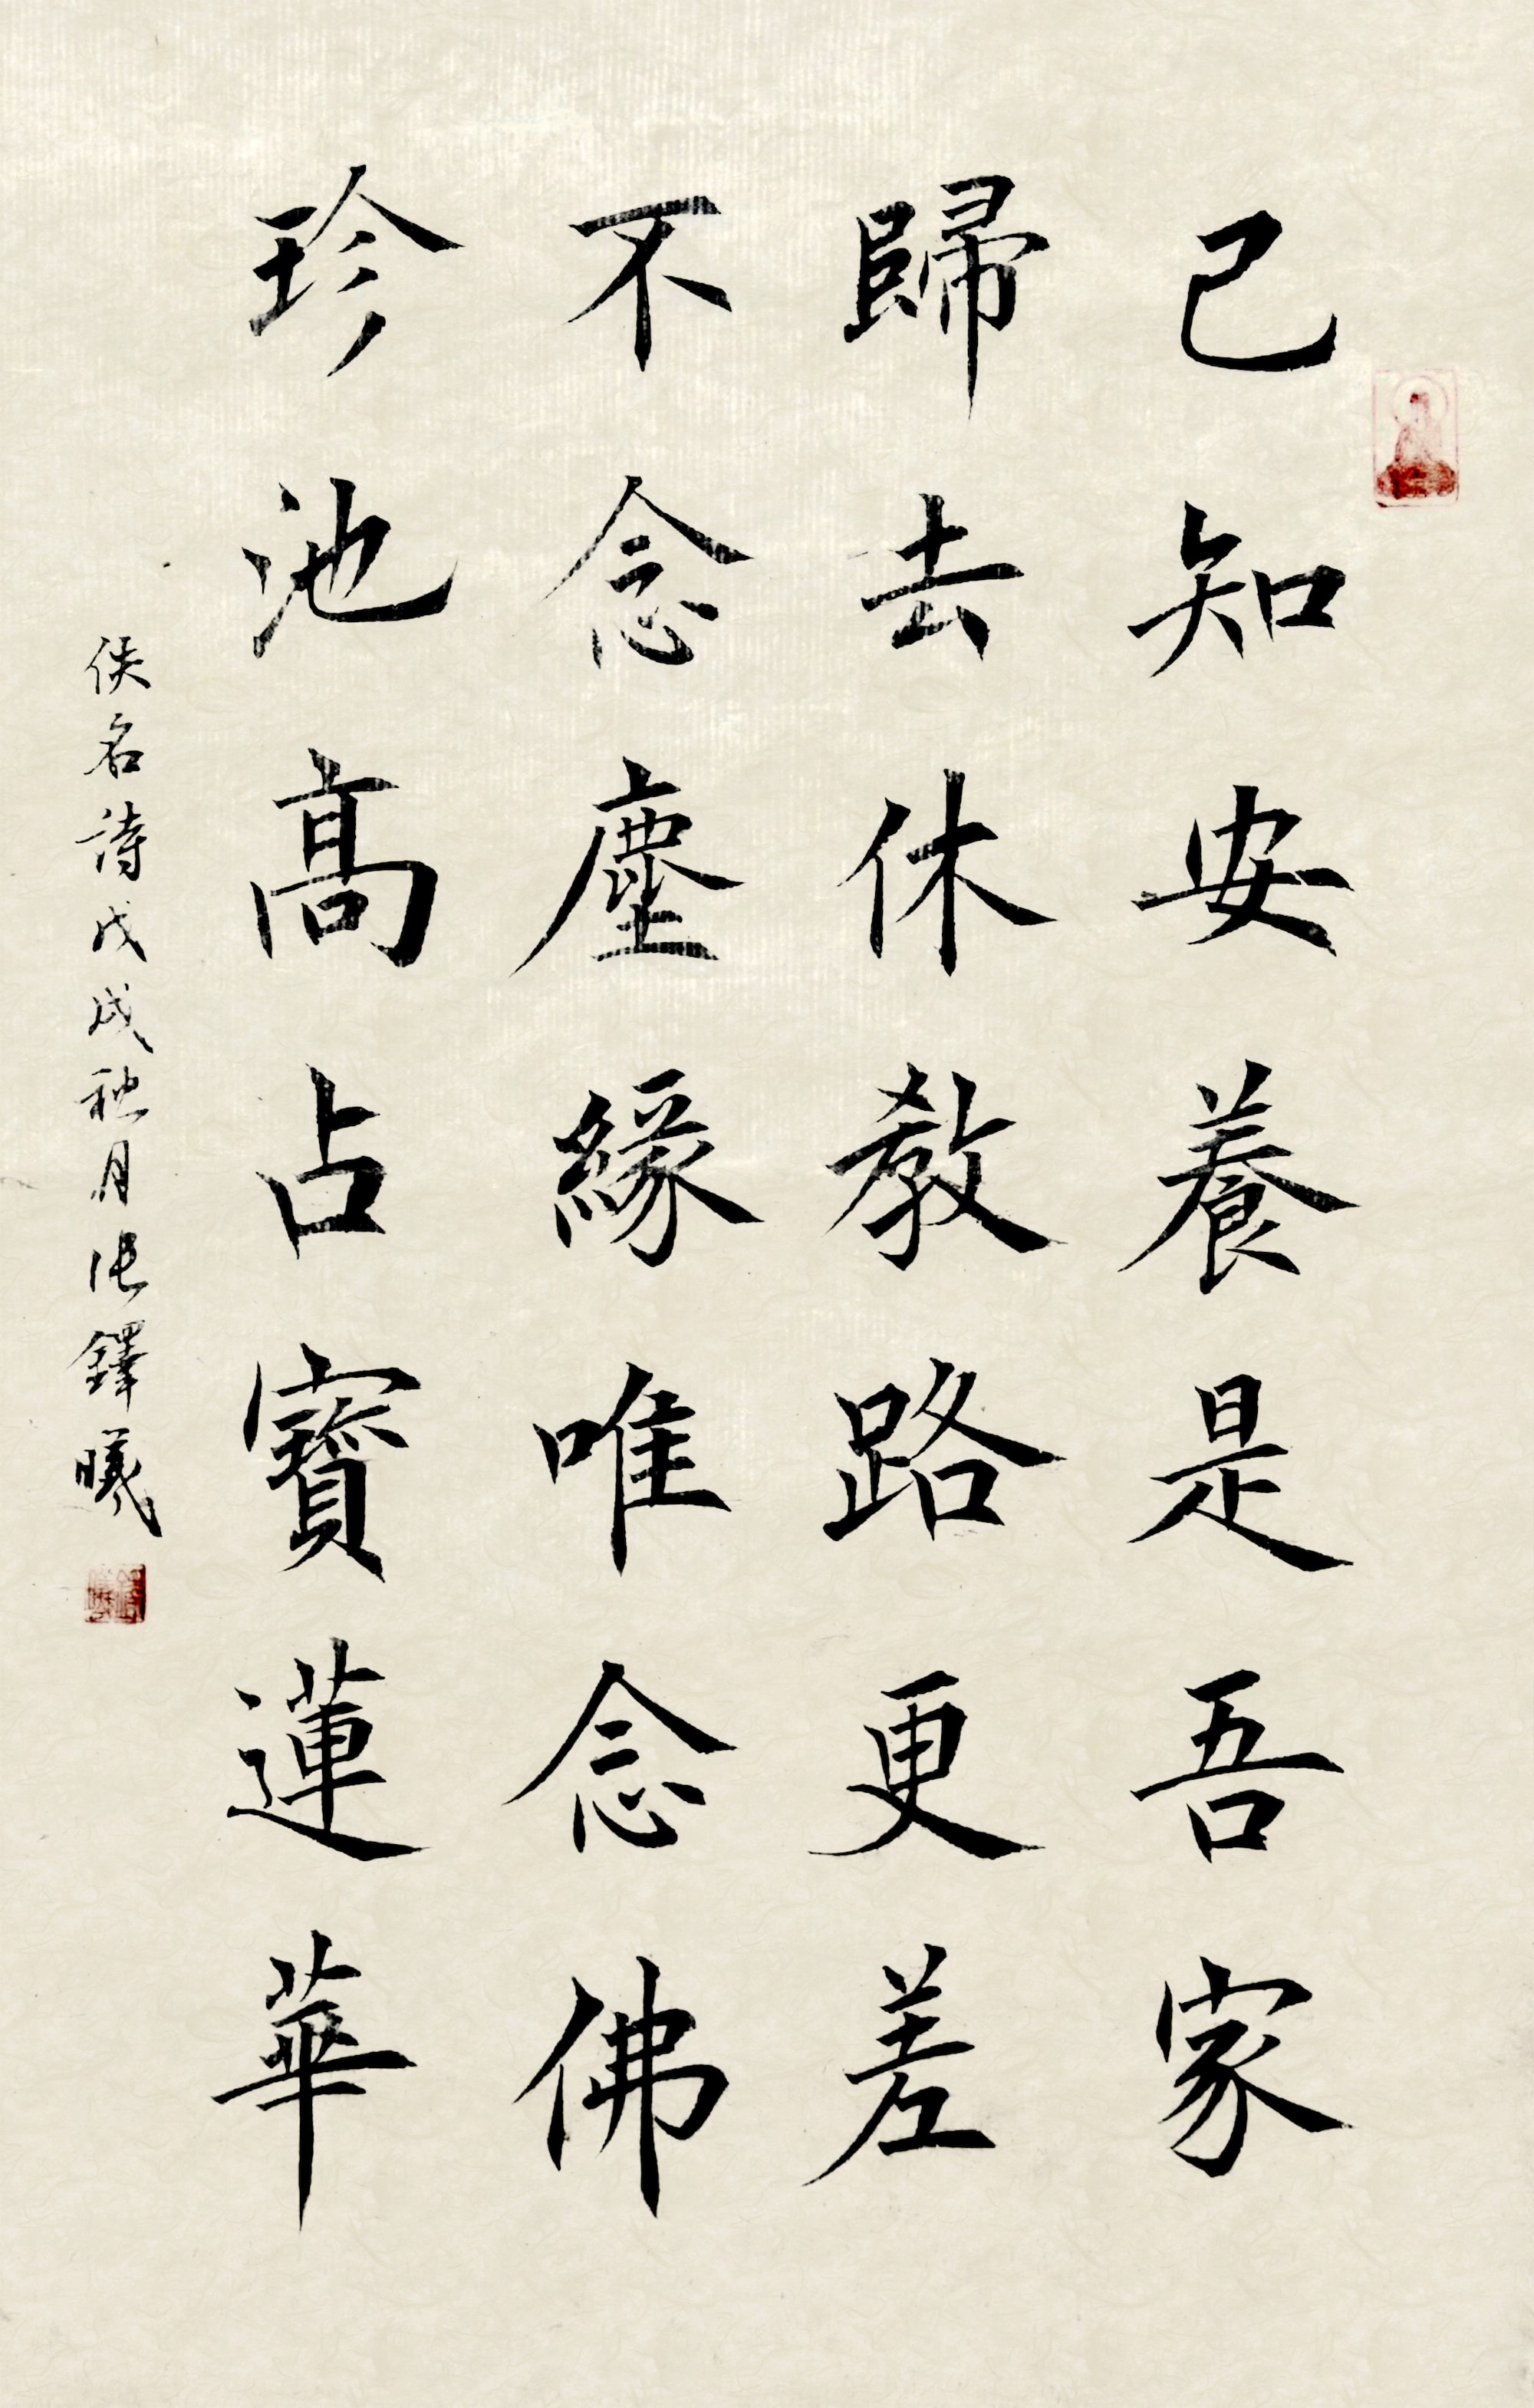 已知安養是吾家
歸去休教路更差
不念塵緣唯念佛
珍池高占寶蓮華
佚名詩戊戌秋月張鐸曦